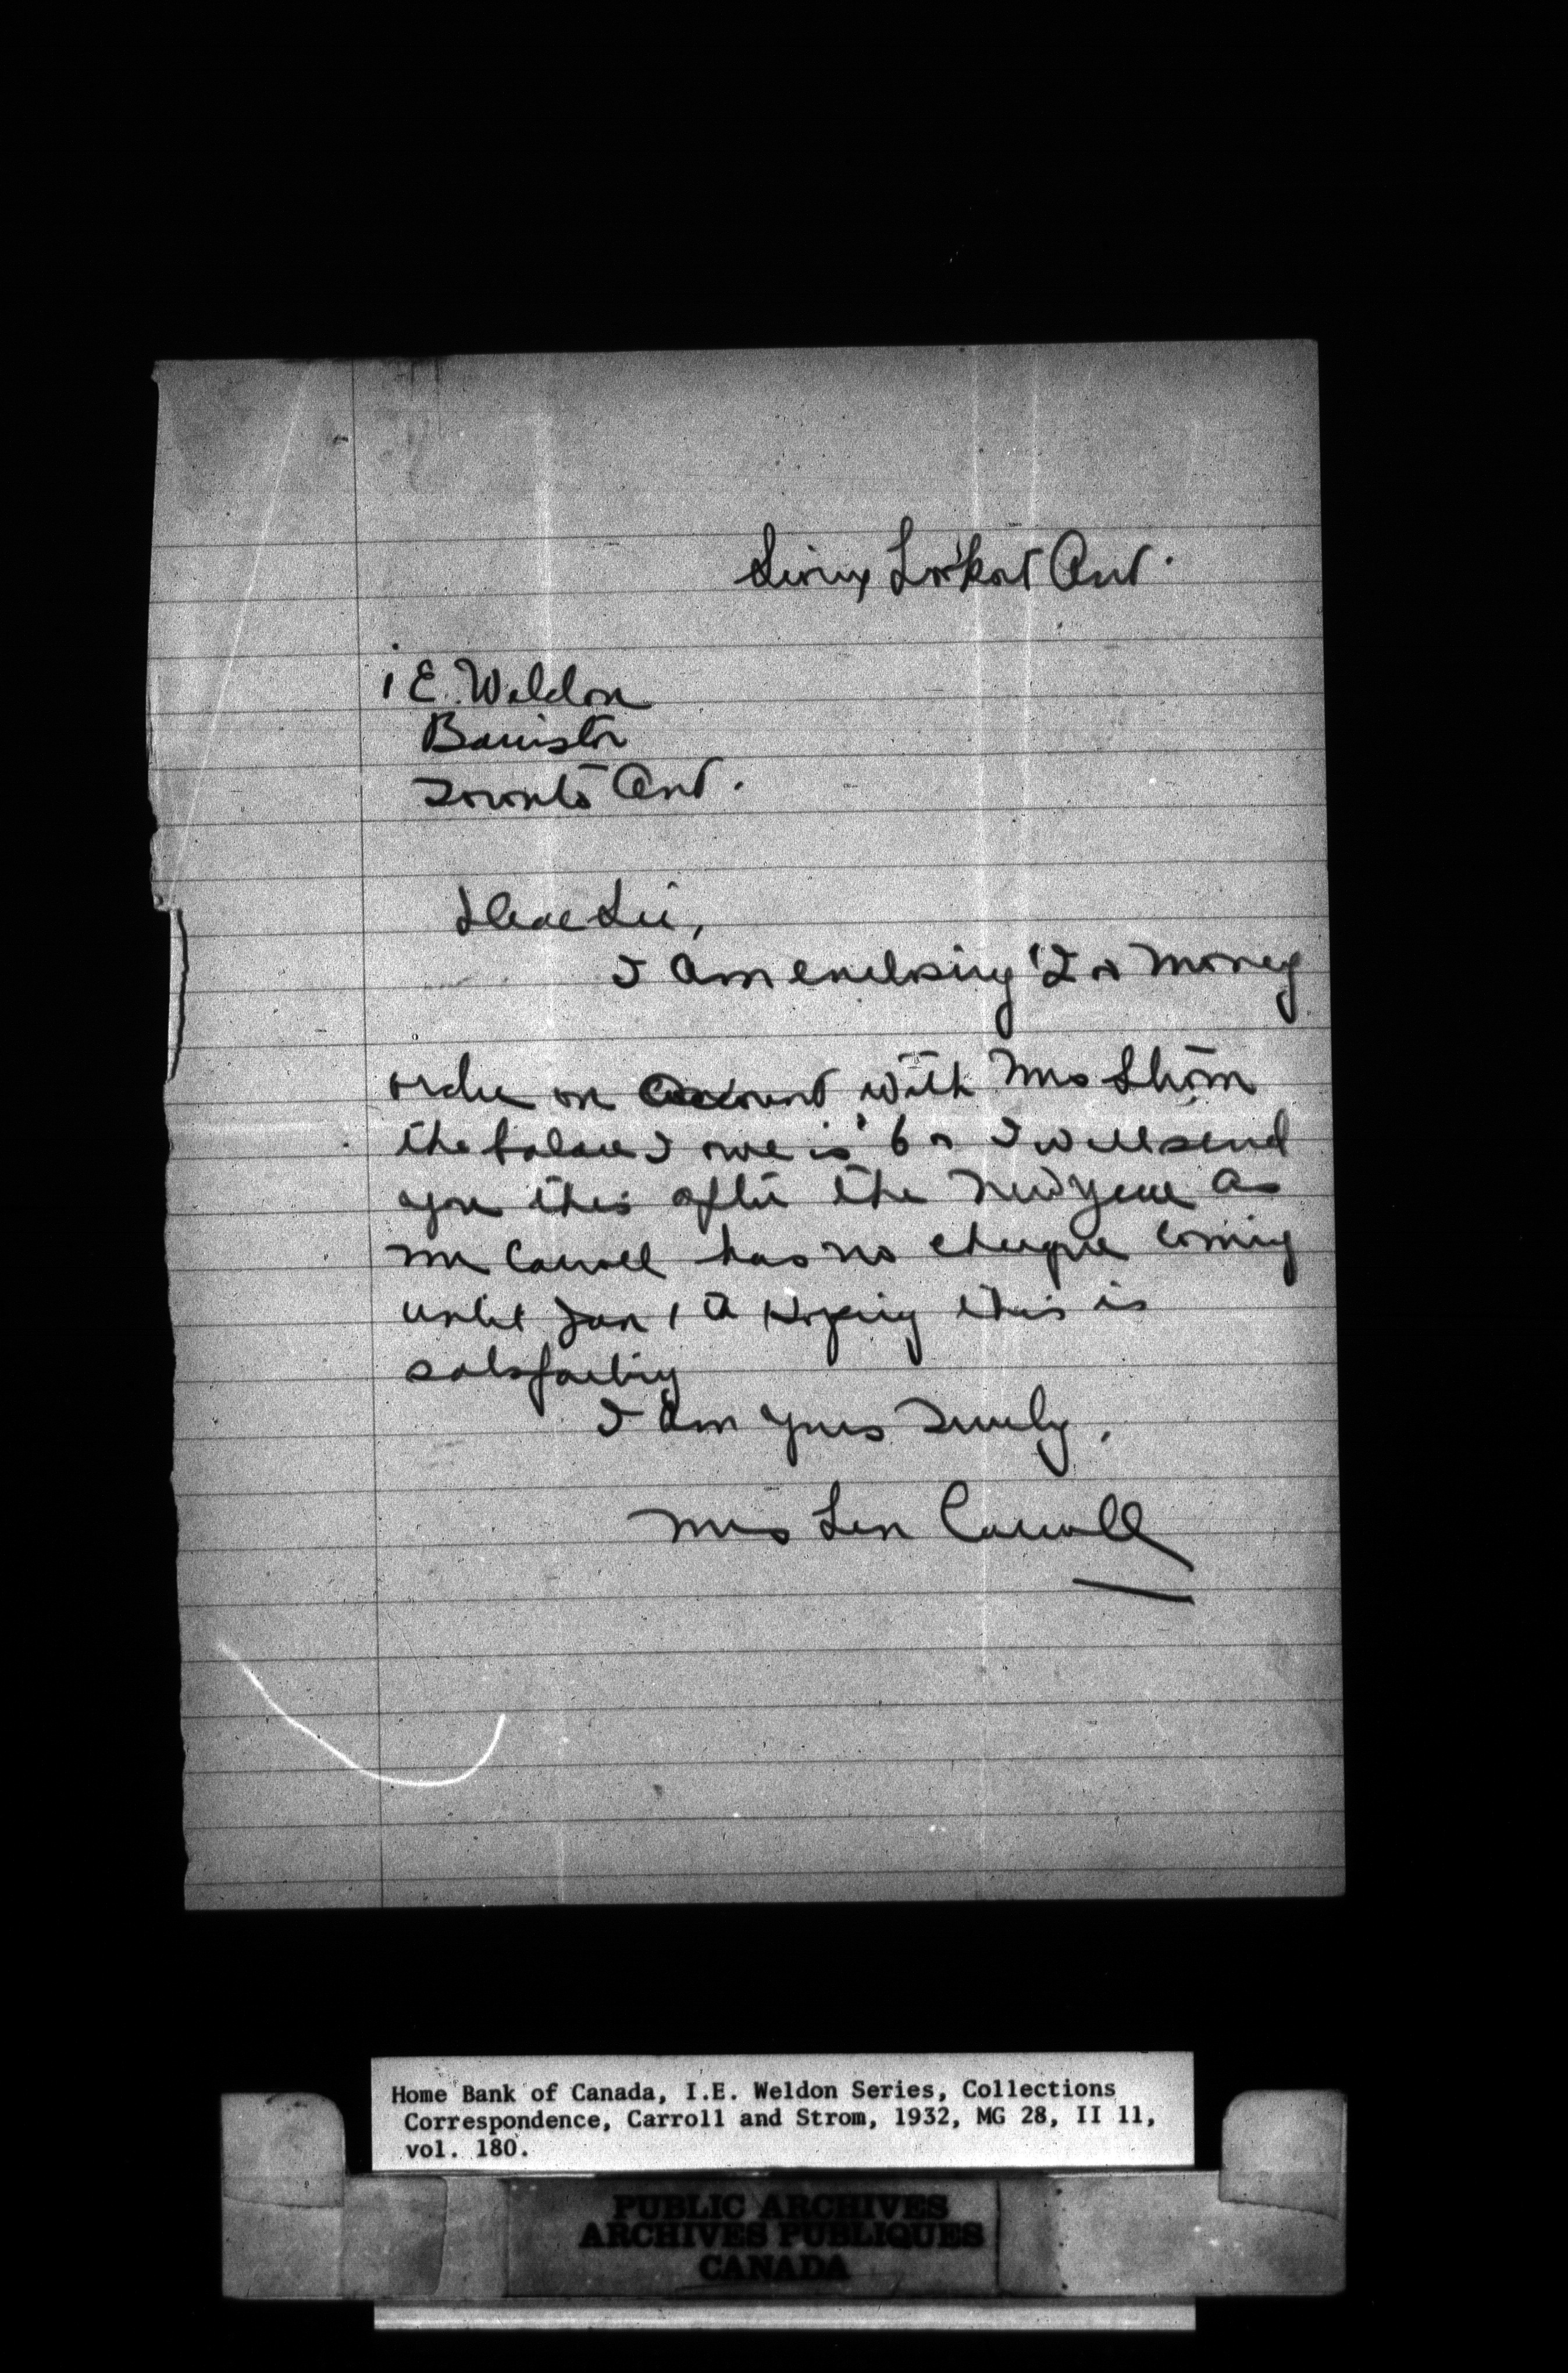 Sioux Lookout Ont.
i E. Weldon
Barrister
Toronto Ont.
Dear Sir,
I am enclosing money
order on account with Mrs Strom
the balance I owe is I will send
you this after the New Year as
Mr Carroll has no cheque coming
until Jan 1 Hoping this is
satisfactory
I am yours Truly,
Mrs Len Carroll
Home Bank of Canada, I.E. Weldon Series, Collections
Correspondence, Carroll and Strom, 1932, MG 28, II 11,
vol. 180.
PUBLIC ARCHIVES
ARCHIVES PUBLIQUES
CANADA